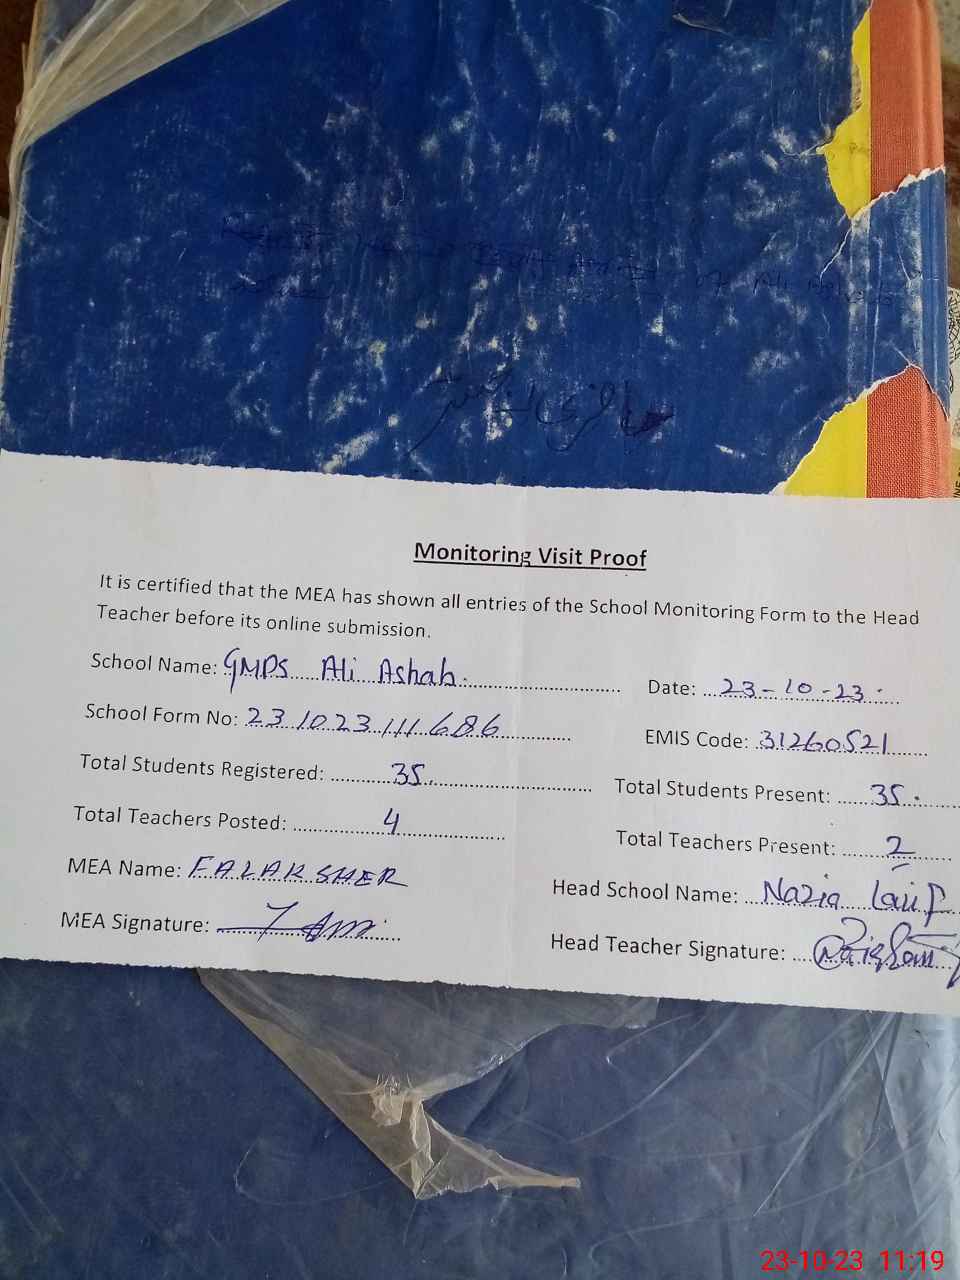 of Ali Ashab
حاضری رجسٹر
Monitoring Visit Proof
It is certified that the MEA has shown all entries of the School Monitoring Form to the Head
Teacher before its online submission.
School Name: GMPS Ali Ashab. Date: 23-10-23.
School Form No: 231023111686 EMIS Code: 31260521
Total Students Registered: 35. Total Students Present: 35.
Total Teachers Posted: 4 Total Teachers Present: 2
MEA Name: FALAK SHER Head School Name: Nazia
MEA Signature: Head Teacher Signature:
23-10-23 11:19